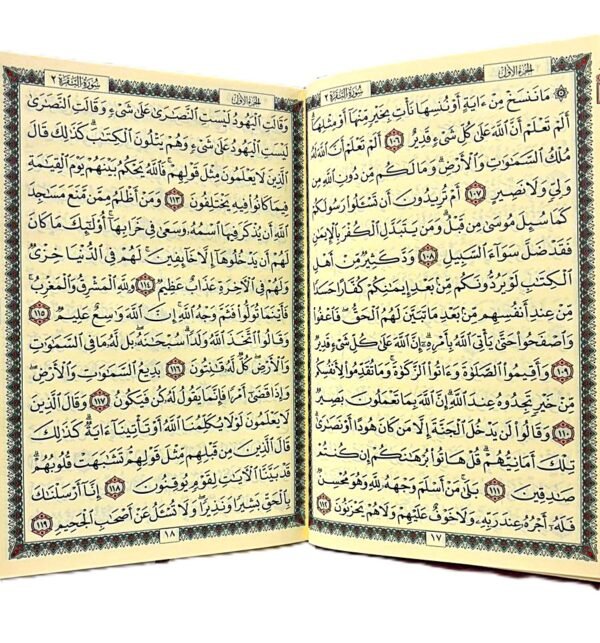 الجزء الأول
سورة البقرة ٢
۞ مَا نَنسَخْ مِنْ ءَايَةٍ أَوْ نُنسِهَا نَأْتِ بِخَيْرٍ مِّنْهَآ أَوْ مِثْلِهَآ
أَلَمْ تَعْلَمْ أَنَّ ٱللَّهَ عَلَىٰ كُلِّ شَىْءٍ قَدِيرٌ ١٠٦ أَلَمْ تَعْلَمْ أَنَّ ٱللَّهَ لَهُۥ
مُلْكُ ٱلسَّمَٰوَٰتِ وَٱلْأَرْضِ ۗ وَمَا لَكُم مِّن دُونِ ٱللَّهِ مِن
وَلِىٍّ وَلَا نَصِيرٍ ١٠٧ أَمْ تُرِيدُونَ أَن تَسْـَٔلُوا۟ رَسُولَكُمْ
كَمَا سُئِلَ مُوسَىٰ مِن قَبْلُ ۗ وَمَن يَتَبَدَّلِ ٱلْكُفْرَ بِٱلْإِيمَٰنِ
فَقَدْ ضَلَّ سَوَآءَ ٱلسَّبِيلِ ١٠٨ وَدَّ كَثِيرٌ مِّنْ أَهْلِ
ٱلْكِتَٰبِ لَوْ يَرُدُّونَكُم مِّنۢ بَعْدِ إِيمَٰنِكُمْ كُفَّارًا حَسَدًا
مِّنْ عِندِ أَنفُسِهِم مِّنۢ بَعْدِ مَا تَبَيَّنَ لَهُمُ ٱلْحَقُّ ۖ فَٱعْفُوا۟
وَٱصْفَحُوا۟ حَتَّىٰ يَأْتِىَ ٱللَّهُ بِأَمْرِهِۦٓ ۗ إِنَّ ٱللَّهَ عَلَىٰ كُلِّ شَىْءٍ قَدِيرٌ
١٠٩ وَأَقِيمُوا۟ ٱلصَّلَوٰةَ وَءَاتُوا۟ ٱلزَّكَوٰةَ ۚ وَمَا تُقَدِّمُوا۟ لِأَنفُسِكُم
مِّنْ خَيْرٍ تَجِدُوهُ عِندَ ٱللَّهِ ۗ إِنَّ ٱللَّهَ بِمَا تَعْمَلُونَ بَصِيرٌ
١١٠ وَقَالُوا۟ لَن يَدْخُلَ ٱلْجَنَّةَ إِلَّا مَن كَانَ هُودًا أَوْ نَصَٰرَىٰ ۗ
تِلْكَ أَمَانِيُّهُمْ ۗ قُلْ هَاتُوا۟ بُرْهَٰنَكُمْ إِن كُنتُمْ
صَٰدِقِينَ ١١١ بَلَىٰ مَنْ أَسْلَمَ وَجْهَهُۥ لِلَّهِ وَهُوَ مُحْسِنٌ
فَلَهُۥٓ أَجْرُهُۥ عِندَ رَبِّهِۦ وَلَا خَوْفٌ عَلَيْهِمْ وَلَا هُمْ يَحْزَنُونَ ١١٢
١٧
الجزء الأول
سورة البقرة ٢
وَقَالَتِ ٱلْيَهُودُ لَيْسَتِ ٱلنَّصَٰرَىٰ عَلَىٰ شَىْءٍ وَقَالَتِ ٱلنَّصَٰرَىٰ
لَيْسَتِ ٱلْيَهُودُ عَلَىٰ شَىْءٍ وَهُمْ يَتْلُونَ ٱلْكِتَٰبَ ۗ كَذَٰلِكَ قَالَ
ٱلَّذِينَ لَا يَعْلَمُونَ مِثْلَ قَوْلِهِمْ ۚ فَٱللَّهُ يَحْكُمُ بَيْنَهُمْ يَوْمَ ٱلْقِيَٰمَةِ
فِيمَا كَانُوا۟ فِيهِ يَخْتَلِفُونَ ١١٣ وَمَنْ أَظْلَمُ مِمَّن مَّنَعَ مَسَٰجِدَ
ٱللَّهِ أَن يُذْكَرَ فِيهَا ٱسْمُهُۥ وَسَعَىٰ فِى خَرَابِهَآ ۚ أُو۟لَٰٓئِكَ مَا كَانَ
لَهُمْ أَن يَدْخُلُوهَآ إِلَّا خَآئِفِينَ ۚ لَهُمْ فِى ٱلدُّنْيَا خِزْىٌ
وَلَهُمْ فِى ٱلْءَاخِرَةِ عَذَابٌ عَظِيمٌ ١١٤ وَلِلَّهِ ٱلْمَشْرِقُ وَٱلْمَغْرِبُ ۚ
فَأَيْنَمَا تُوَلُّوا۟ فَثَمَّ وَجْهُ ٱللَّهِ ۚ إِنَّ ٱللَّهَ وَٰسِعٌ عَلِيمٌ ١١٥
وَقَالُوا۟ ٱتَّخَذَ ٱللَّهُ وَلَدًا ۗ سُبْحَٰنَهُۥ ۖ بَل لَّهُۥ مَا فِى ٱلسَّمَٰوَٰتِ
وَٱلْأَرْضِ ۖ كُلٌّ لَّهُۥ قَٰنِتُونَ ١١٦ بَدِيعُ ٱلسَّمَٰوَٰتِ وَٱلْأَرْضِ ۖ
وَإِذَا قَضَىٰٓ أَمْرًا فَإِنَّمَا يَقُولُ لَهُۥ كُن فَيَكُونُ ١١٧ وَقَالَ ٱلَّذِينَ
لَا يَعْلَمُونَ لَوْلَا يُكَلِّمُنَا ٱللَّهُ أَوْ تَأْتِينَآ ءَايَةٌ ۗ كَذَٰلِكَ
قَالَ ٱلَّذِينَ مِن قَبْلِهِم مِّثْلَ قَوْلِهِمْ ۘ تَشَٰبَهَتْ قُلُوبُهُمْ ۗ
قَدْ بَيَّنَّا ٱلْءَايَٰتِ لِقَوْمٍ يُوقِنُونَ ١١٨ إِنَّآ أَرْسَلْنَٰكَ
بِٱلْحَقِّ بَشِيرًا وَنَذِيرًا ۖ وَلَا تُسْـَٔلُ عَنْ أَصْحَٰبِ ٱلْجَحِيمِ ١١٩
١٨